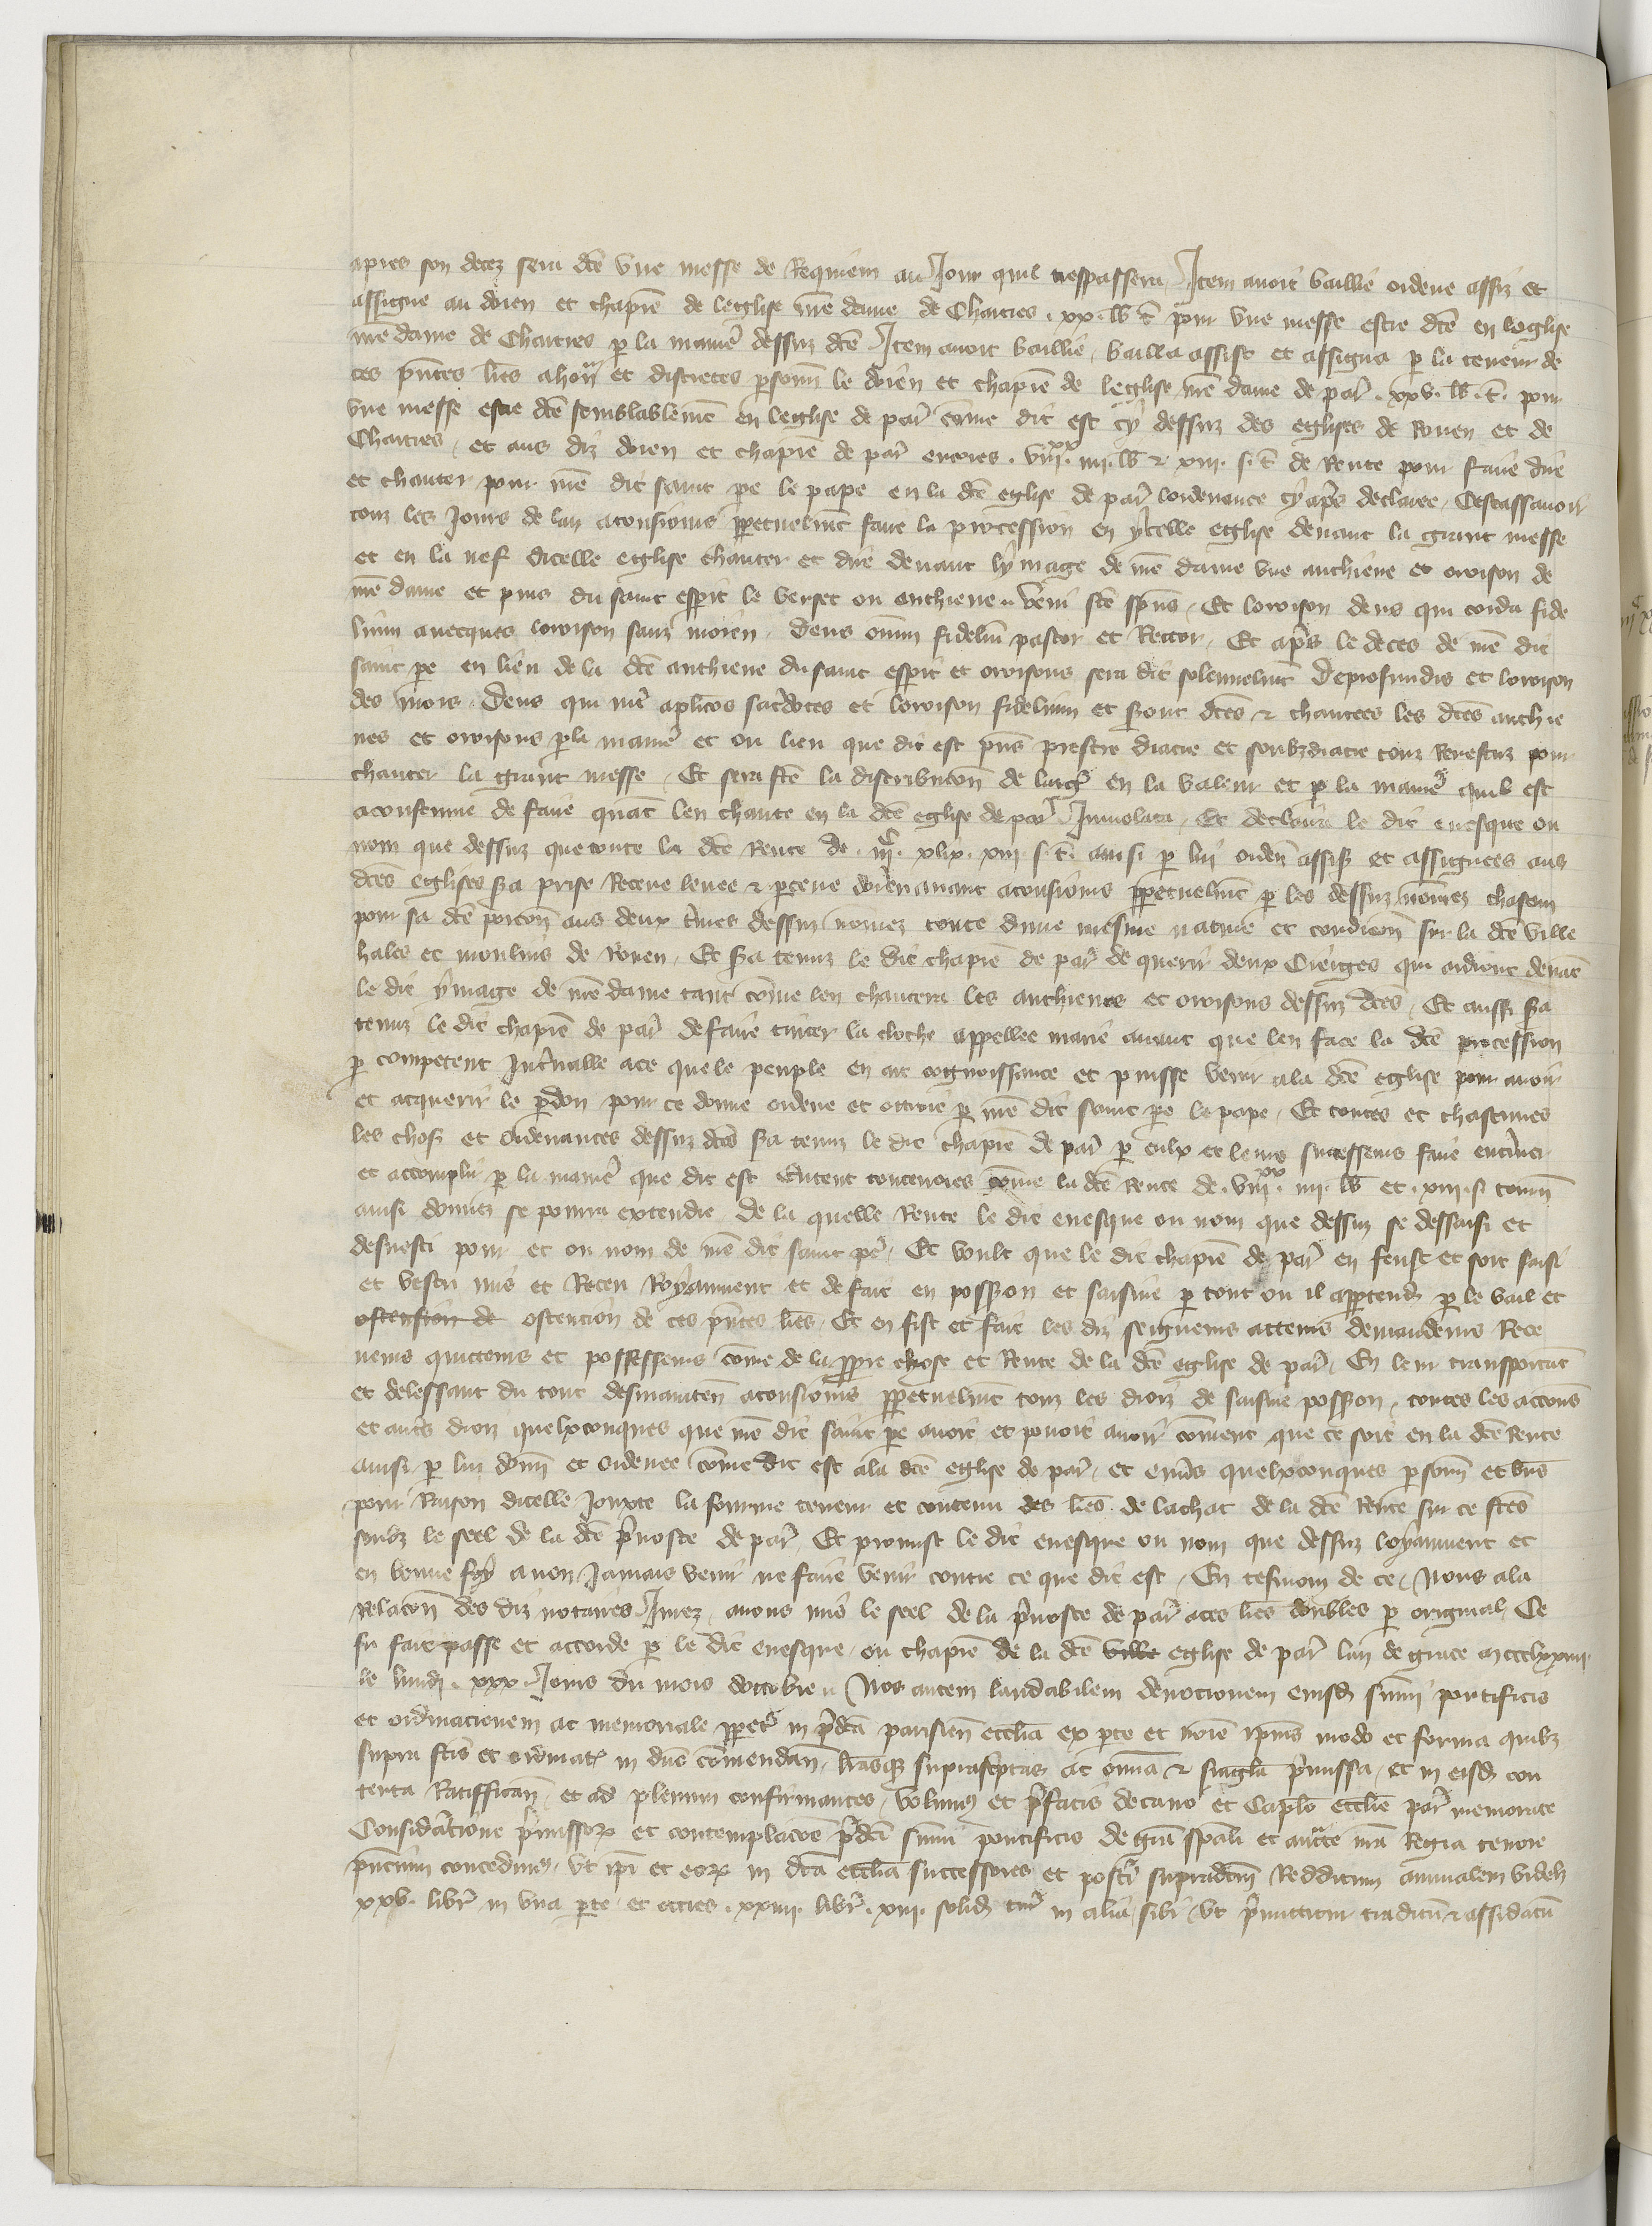 apres son decez sera dcē vne messe de Requiem au Jour quil trespassera / Item auoit baillié ordene assiz et
assigne au doien et chapr̄e de leglise nr̄e dame de Chartres . xx . lb t̄ pour vne messe estre dcē en leglise
nr̄e dame de Chartres p la manie᷑ dessuz dcē Item auoit baillié , bailla assist et assigna p la teneur de
ces pn̄tes lr̄es a honr̄ et discretes psonn̄ le doien et chapr̄e de leglise nr̄e dame de par᷑ . xxv . lb . t̄ . pour
vne messe estre dcē semblablemēt en leglise de par᷑ cōme dit est cy dessuz des eglises de Rouen et de
Chartres , et aus diz doien et chapr̄e de par᷑ encores . viiiˣˣ . iiii . lb & xiii . s . t̄ de Rente pour faire dire
et chanter pour nr̄e dit saint pe le pape en la dcē eglise de par᷑ lordenance cy apr̄s declaree , Cestassauoir
touz les Jours de lan a tousiours ppetuelmt̄ faire la procession en ycelle eglise deuant la grant messe
et en la nef dicelle eglise chanter et dire deuant lymage de nr̄e dame vne anthiene et oroison de
nr̄e dame et puis du saint espit le verset ou anthiene veni scē spūs , Et loroison deus qui corda fide
lium auecques loroison sanz moien , Deus om̄um fideliū pastor et Rector , Et apr̄s le deces de nr̄e dit
saint pe en lieu de la dcē anthiene du saint espit et oroisons sera dit solennelmt̄ Deprofundis et loroison
des mors . Deus qui int᷑ aplicos sac᷑dotes et loroison fidelium et seront dcēs & chantees les dcēs anthie
nes et oroisons p la manie᷑ et ou lieu que dit est pūs prestre diacre et soubzdiacre touz Reuestuz pour
chanter la grant messe , Et sera fcē la distribucōn de largt̄ en la valeur et p la manie᷑ quil est
acoustume de faire quāt len chante en la dcē eglise de par᷑ Inuiolata , Et declaira le dit euesque ou
nom que dessuz que toute la dcē Rente de . iiiᶜ . xlix . xiii . s . t̄ . ainsi p lui ordeñ assise et assignees aus
dcēs eglises sera prise Receue leuee & pceue dorenauant a tousiours ppetuelmt̄ p les dessuz nōmez chascun
pour sa dcē porcōn aus deux t᷑mes dessuz nōmez toute dune mesme nature et condicōn sur la dcē ville
hales et moulins de Rouen , Et sera tenuz le dit chapr̄e de par᷑ de querir deux Cierges qui ardront deuāt
le dit ymage de nr̄e dame tant cōme len chantera les anthienes et oroisons dessuz dcēs , Et aussi sera
tenuz le dit chapr̄e de par᷑ de faire tinter la cloche appellee marie auant que len face la dcē procession
p competent Int᷑ualle a ce que le peuple en ait cognoissance et puisse venir a la dcē eglise pour auoir
et acquerir le pdon pour ce donne ordene et ottroie p nr̄e dit saint pe le pape , Et toutes et chascunes
les choses et Ordenances dessuz dcēs sera tenuz le dit chapr̄e de par᷑ p eulx et leurs successeurs faire ent᷑iner
et accomplir p la manie᷑ que dit est Entent toutuoies cōme la dcē Rente de . viiiˣˣ . iiii . lb et . xiii . s tourn̄
ainsi donnez se pourra extendre De la quelle Rente le dit euesque ou nom que dessuz se dessaisi et
desuesti pour et ou nom de nr̄e dit saint pe᷑ , Et voult que le dit chapr̄e de par᷑ en feust et soit saisi
et vestu mis et Receu Royaument et de fait en posson et saisine p tout ou il apptendr᷑ p le bail et
ostension de ostencion de ces pn̄tes lr̄es , Et en fist et fait les diz seigneurs atteurs demandeurs Rece
ueurs quitteurs et possesseurs cōme de la ppre chose et Rente de la dcē eglise de par᷑ , En leur transportāt
et delessant du tout desmainteñ a tousiours ppetuelmt̄ touz les droiz de saisine posson , toutes les accōns
et aut᷑s droiz quelxconques que nr̄e dit saint pe auoit et pouoit auoir cōment que ce soit en la dcē Rente
ainsi p lui donn̄ et Ordenee cōme dit est a la dcē eglise de par᷑ , et enu᷑s quelxconques psonn̄ et biēs
pour Raison dicelle Jouxte la fourme teneur et contenu des lr̄es de lachat de la dcē Rente sur ce fcēs
soubz le seel de la dcē p᷑uoste de par᷑ , Et promist le dit euesque ou nom que dessuz loyaument et
en bonne foy a non Jamais venir ne faire venir contre ce que dit est , En tesmoin de ce , Nous a la
Relacōn des diz notaires Jurez , auons mis le seel de la p᷑uoste de par᷑ a ces lr̄es doubles p original , Ce
fu fait passe et accorde p le dit euesque ou chapr̄e de la dcē ville eglise de par᷑ lan de grace mccclxxiiii
le lundi . xxx . Jours du mois doctobre // Nos autem laudabilem deuocionem eiusd᷑ sum̄i pontificis
et ordinacionem ac memoriale ppet᷑ in p᷑dcā parisien̄ ecclīa ex pte et noīe ip̄ius modo et forma quibȝ
supra fcīs et ordinat᷑ in dn̄o cōmendan̄ . lr̄asqȝ suprascptas ac om̄ia & singl̄a p᷑missa , et in eisd᷑ con
tenta Ratifican̄ , et ad plenum confirmantes , Volumꝰ et p᷑fatis decano et Caplō ecclīe par᷑ memorate
Considac᷑ione p᷑missoꝝ et contemplacōe p᷑dcī sum̄i pontificis de grā spāli et auctē nr̄a Regia tenore
pn̄cium concedimꝰ , vt ipī et eoꝝ in dcā ecclīa successores et post᷑i supradcm̄ Redditum annualem videlȝ
xxv . libr᷑ in vna pte , et octies . xxiiii . libr᷑ . xiii . solid᷑ tur᷑ in alia , sibi vt p᷑mittitur traditū & assidatū